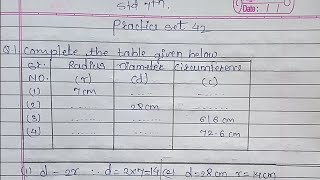 Std 7th.
Date: 11
Practice set 42
Q1 Complete the table given below
Sr. Radius Diameter Circumference
NO. (r) (d) (c)
(1) 7cm ...... ......
(2) ...... 28cm ......
(3) ...... ...... 616cm
(4) ...... ...... 72.6cm
(1) d = 2r ∴ d = 2×7=14 (2) d=28cm r=14cm